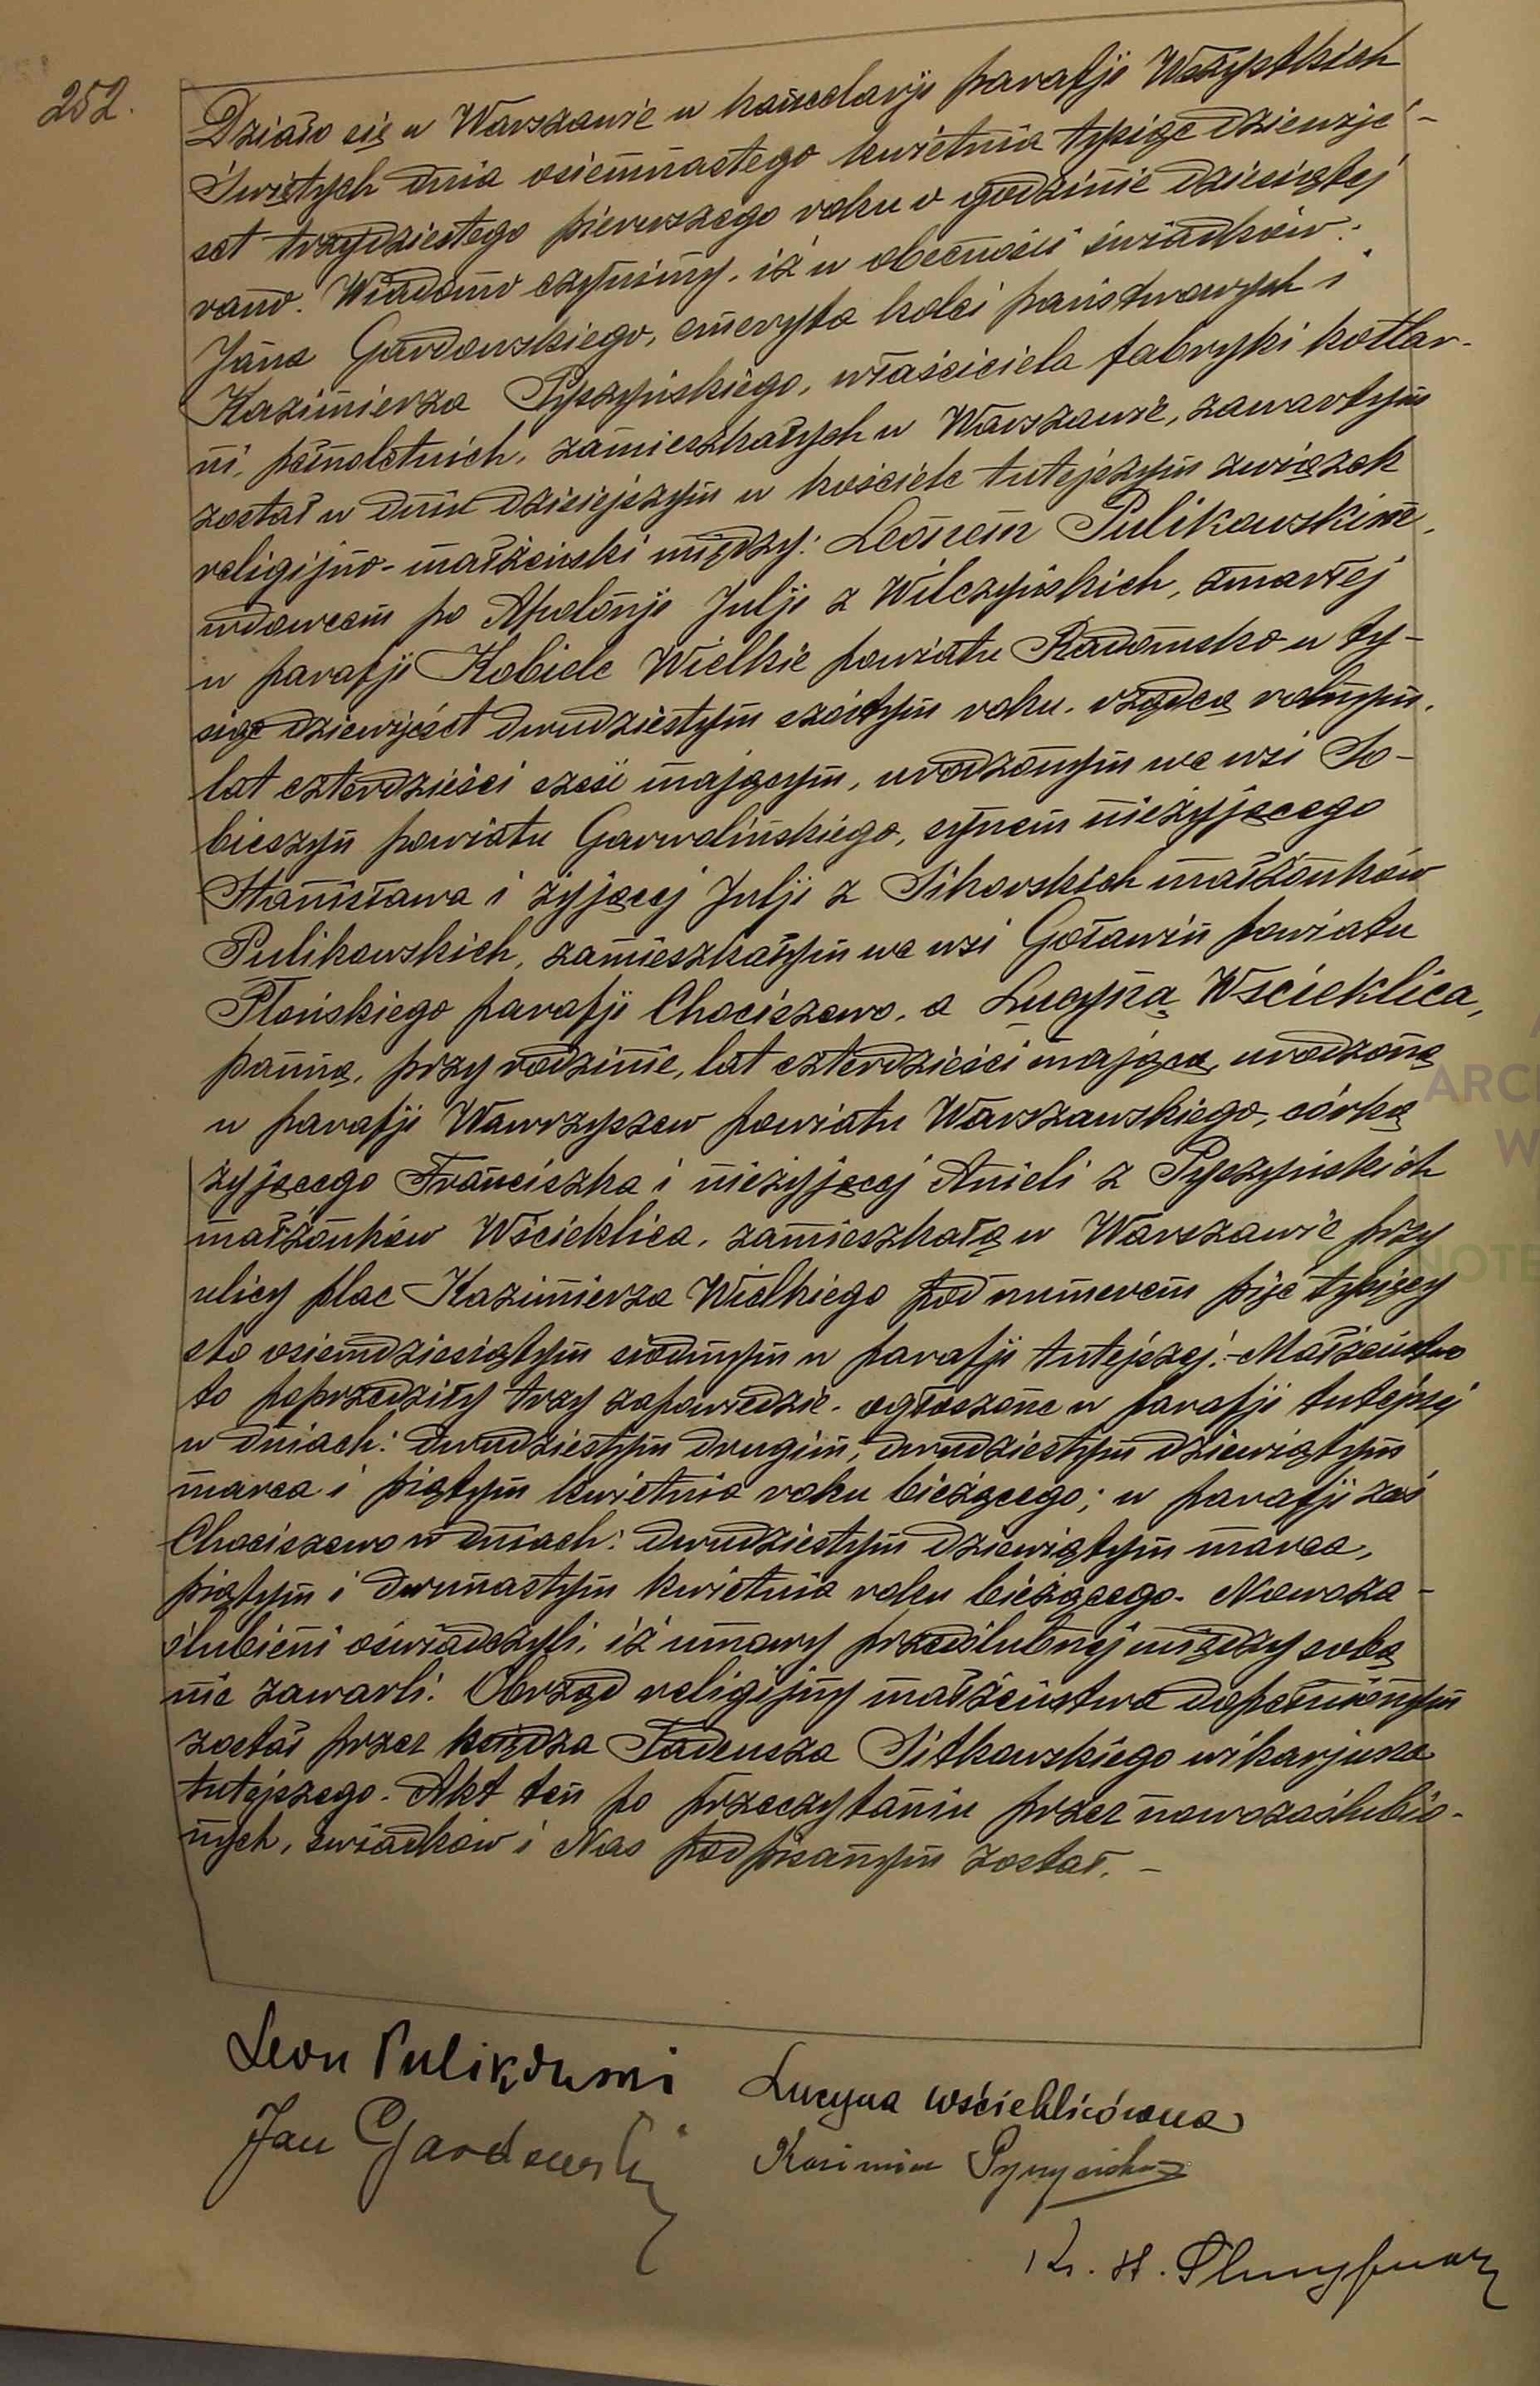 252.
Działo się w Warszawie w kancelarji parafji Wszystkich
Świętych dnia osiemnastego kwietnia tysiąc dziewięć-
set trzydziestego pierwszego roku o godzinie dziesiątej
rano. Wiadomo czynimy, iż w obecności świadków:
Jana Gardowskiego, emeryta kolei państwowych i
Kazimierza Pyszyńskiego, właściciela fabryki kotlar-
ni, pełnoletnich, zamieszkałych w Warszawie, zawartym
został w dniu dzisiejszym w kościele tutejszym związek
religijno-małżeński między: Leonem Pulikowskim,
wdowcem po Apolonji Julji z Wilczyńskich, zmarłej
w parafji Kobiele Wielkie powiatu Radomsko w ty-
siąc dziewięćset dwudziestym szóstym roku, rządcą rolnym,
lat czterdzieści sześć mającym, urodzonym we wsi So-
bieszyn powiatu Garwolińskiego, synem nieżyjącego
Stanisława i żyjącej Julji z Sikorskich małżonków
Pulikowskich, zamieszkałym we wsi Goławin powiatu
Płońskiego parafji Chociszewo, a Lucyną Wścieklica,
panną, przy rodzinie, lat czterdzieści mającą, urodzoną
w parafji Wawrzyszew powiatu Warszawskiego, córką
żyjącego Franciszka i nieżyjącej Anieli z Pyszyńskich
małżonków Wścieklica, zamieszkałą w Warszawie przy
ulicy plac Kazimierza Wielkiego pod numerem pięć tysięcy
sto osiemdziesiątym siódmym w parafji tutejszej.- Małżeństwo
to poprzedziły trzy zapowiedzie, ogłoszone w parafji tutejszej
w dniach: dwudziestym drugim, dwudziestym dziewiątym
marca i piątym kwietnia roku bieżącego; w parafji zaś
Chociszewo w dniach: dwudziestym dziewiątym marca,
piątym i dwunastym kwietnia roku bieżącego. Nowoza-
ślubieni oświadczyli, iż umowy przedślubnej między sobą
nie zawarli. Obrzęd religijny małżeństwa dopełnionym
został przez księdza Tadeusza Sitkowskiego wikarjusza
tutejszego. Akt ten po przeczytaniu przez nowozaślubio-
nych, świadków i Nas podpisanym został. -
Leon Pulikowski
Lucyna Wścieklicówna
Jan Gardowski
Kazimierz Pyszyński
Ks. H.